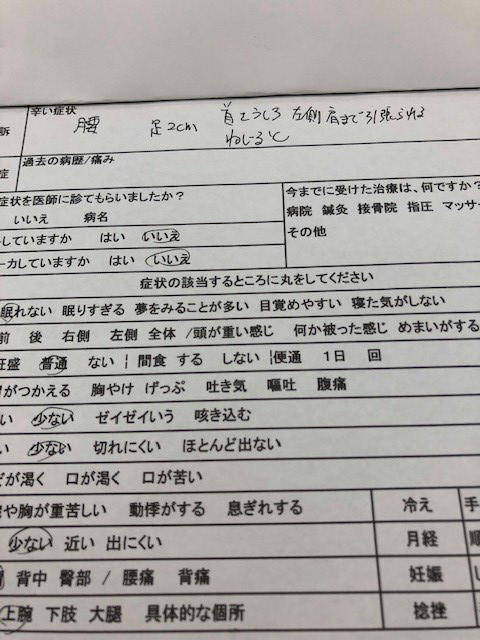 訴
辛い症状
腰 足2cm 首とうしろ 左側 肩まで引張られる
ねじると
症
過去の病歴/痛み
症状を医師に診てもらいましたか？
いいえ 病名
今までに受けた治療は、何ですか？
病院 鍼灸 接骨院 指圧 マッサー
その他
していますか はい いいえ
ーカしていますか はい いいえ
症状の該当するところに丸をしてください
眠れない 眠りすぎる 夢をみることが多い 目覚めやすい 寝た気がしない
前 後 右側 左側 全体 /頭が重い感じ 何か被った感じ めまいがする
旺盛 普通 ない 間食 する しない 便通 1日 回
がつかえる 胸やけ げっぷ 吐き気 嘔吐 腹痛
い 少ない ゼイゼイいう 咳き込む
い 少ない 切れにくい ほとんど出ない
が渇く 口が渇く 口が苦い
や胸が重苦しい 動悸がする 息ぎれする 冷え 手
少ない 近い 出にくい 月経 順
背中 臀部 / 腰痛 背痛 妊娠 し
上腕 下肢 大腿 具体的な個所 捻挫